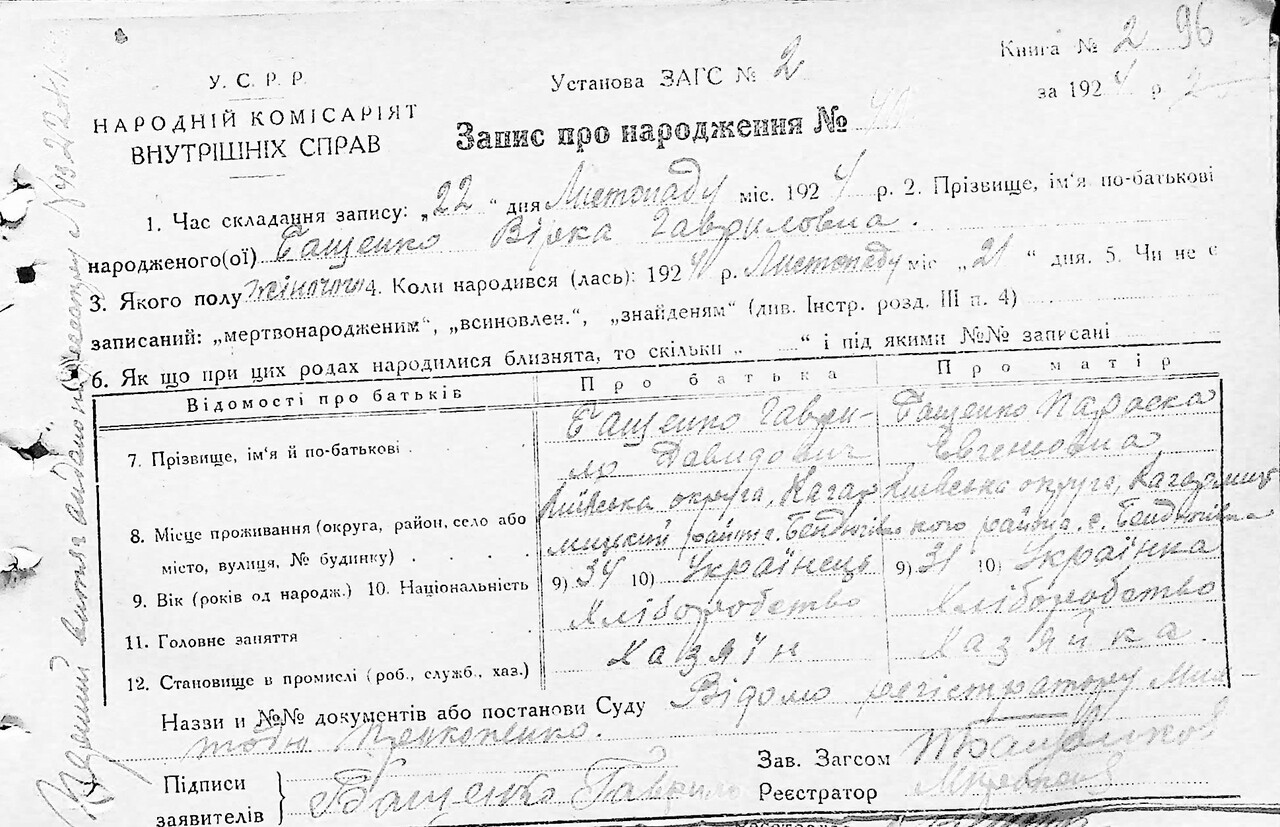 Книга № 2 96
У. С. Р. Р.
Установа ЗАГС № 2
за 1924 р. 2
НАРОДНІЙ КОМІСАРІЯТ
ВНУТРІШНІХ СПРАВ
Запис про народження №
1. Час складання запису: „22“ дня Листопаду міс. 1924 р. 2. Прізвище, ім'я по-батькові
народженого(ої) Бащенко Вірка Гавриловна.
3. Якого полу жіночого 4. Коли народився (лась): 1924 р. Листопаду міс „21“ дня. 5. Чи не є
записаний: „мертвонародженим“, „всиновлен.“, „знайденям“ (див. Інстр. розд. III п. 4)
6. Як що при цих родах народилися близнята, то скільки „ “ і під якими №№ записані
Відомості про батьків Про батька Про матір
7. Прізвище, ім'я й по-батькові Бащенко Гаври- Бащенко Параска
ло Давидович Евгеновна
8. Місце проживання (округа, район, село або Київська округа, Кагар Київська округа, Кагарлиц
місто, вулиця, № будинку) лицький район с. Бендюгів кого району. с. Бендюгівка
9. Вік (років од народж.) 10. Національність 9) 34 10) Українець 9) 31 10) Українка
11. Головне заняття Хліборобство Хліборобство
12. Становище в промислі (роб., служб., хаз.) Хазяїн Хазяйка.
Назви и №№ документів або постанови Суду Відомо регістратору
Прокопенко.
Зав. Загсом
Підписи
заявителів Бащенко Гаврило
Реєстратор